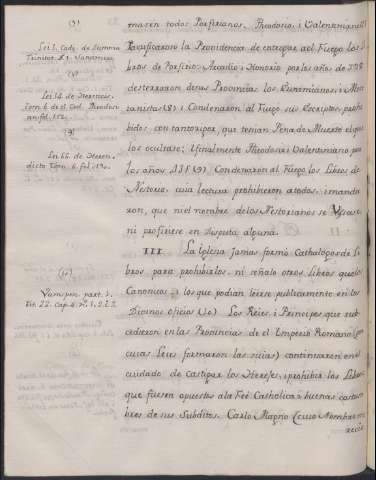 (7)
Lei 1. Codg. de Summa
Trinitat. §. 1. Vansancimus
(8)
Lei 34. de Hereticis
Tom. 6. de el Cod. Theodosi-
(9)
Lei 66. de Hereti.
dicto Tom. 6. fol.
(10)
Vanspen. part. 1.
tit. 22. Cap. 4. nº. 1. 2. i 3.
masen todos Porfirianos. Theodosio, i Valentiniano
Ratificaron la Providencia de entregar al Fuego los Li-
bros de Porfirio: Arcadio i Honorio por los años de 398
desterraron de sus Provincias los Eunomianos, i Mon-
tanistas (8) i Condenaron al Fuego sus Escriptos, prohi-
bidos con tanto rigor, que tenian Pena de Muerte el que
los ocultase; i finalmente Theodosio i Valentiniano por
los años 435 (9) Condenaron al Fuego los Libros de
Nestorio, cuia lectura prohibieron a todos, i mandaron,
que ni el nombre de los Nestorianos se Vsase,
ni profiriese en disputa alguna.
III. La Iglesia Jamas formò Cathalogos de Li-
bros para prohibirlos, ni señalo otros Libros que los
Canonicos, i los que podian leerse publicamente en los
Divinos oficios (10) Los Reies i Principes que suc-
cedieron en las Provincias de el Imperio Romano (por
cuias Leies formaron las suias) continuaron en el
cuidado de Castigar los Herejes, i prohibir los Libros
que fuesen opuestos a la Feé Catholica, i buenas costum-
bres de sus Subditos. Carlo Magno (cuio Nombre me-
recio